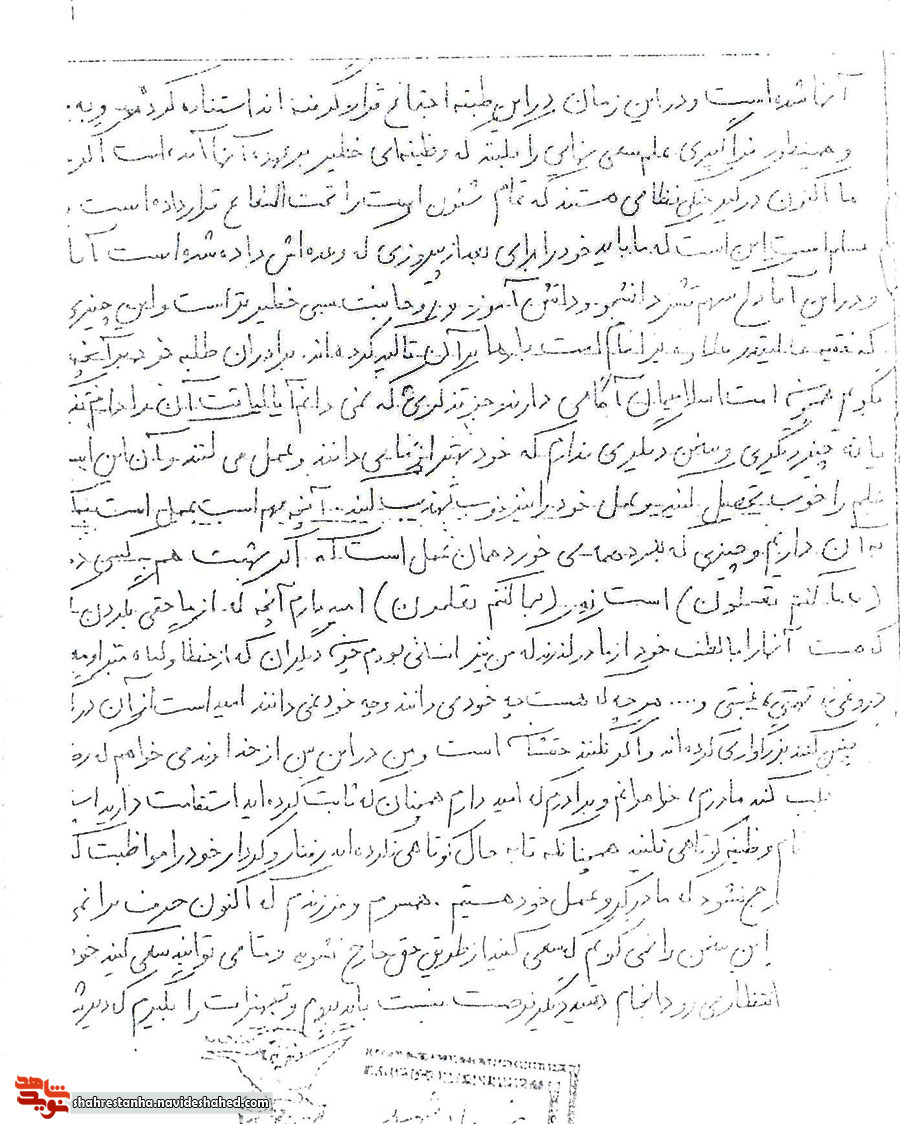 آنها شده است و در این زمان در این طبقه اجتماع قرار گرفته اند استفاده کرده و به
و همینطور فراگیری علم سعی را بکنند که وظیفه‌ای خطیر بر عهده آنها آمده است اگر
ما اکنون درگیر جنگ نظامی هستند که تمام شئون است را تحت الشعاع قرار داده است
مسلم است این است که ما باید خود را برای بعد از پیروزی که وعده‌اش داده شده است آما
و در این آمادگی سهم قشر دانشجو و دانش آموز و روحانیت بسی خطیرتر است و این چیزی
که فقیه عالیقدر علاوه بر امام امت بارها بر آن تأکید کرده‌اند. برادران طلبه خود بر آنچه
میگویم آگاهی دارند و جز تذکری که نمی دانم آیا لیاقت آن را دارم
یا نه چیز دیگری و سخن دیگری ندارم که خود می دانند و عمل می کنند و آن این است
علم را خوب تحصیل کنید و عمل خود را نیز خوب تهذیب کنید... آنچه مهم است عمل است
به آن داریم و چیزی که بدرد ما می خورد همان عمل است که اگر بهشت هم به کسی
(بما کنتم تعملون) است نه (بما کنتم تعلمون) امیدوارم آنچه که از ما حقی بگردن
که هست آنها را با لطف خود از ما درگذرند که من نیز انسانی بودم چون دیگران که از خطا و گناه مبرا
دروغی، تهمتی، غیبتی و.... هر چه که هست چه خود می دانند و چه خود نمی دانند امید است از آن در
چنین کنند بزرگواری کرده‌اند و اگر نکنند حقشان است و من در این بین از خداوند می خواهم که
طلب کند مادرم، خواهرانم و برادرم که امید دارم همچنان که ثابت کرده‌اید استقامت دارید
انجام وظیفه کوتاهی نکنید همچنانکه تا به حال کوتاهی نکرده‌اید رفتار و کردار خود را مواظبت
خارج نشود که ما در گرو عمل خود هستیم. همسرم و فرزندم که اکنون حرف مرا
این سخن را نمی گویم که سعی کنید از طریق حق خارج نشوید و تا می توانید سعی کنید
انتظار می رود انجام دهید دیگر فرصت نیست باید بروم و تجهیزات را بگیرم که دیر
شاهد
نوید
shahrestanha.navideshahed.com